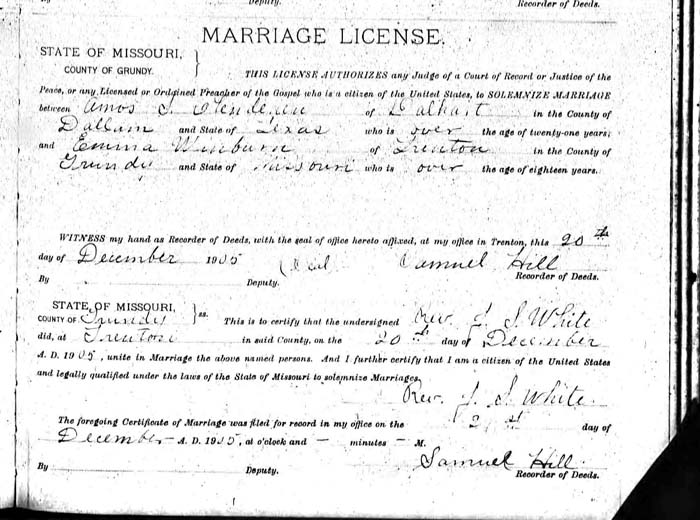 Deputy. Recorder of Deeds.
MARRIAGE LICENSE.
STATE OF MISSOURI,
COUNTY OF GRUNDY.
THIS LICENSE AUTHORIZES any Judge of a Court of Record or Justice of the
Peace, or any Licensed or Ordained Preacher of the Gospel who is a citizen of the United States, to SOLEMNIZE MARRIAGE
between Amos of Dalhart in the County of
Dallam and State of Texas who is over the age of twenty-one years;
and Emma Winburn of Trenton in the County of
Grundy and State of Missouri who is over the age of eighteen years.
WITNESS my hand as Recorder of Deeds, with the seal of office hereto affixed, at my office in Trenton, this 20th
day of December 1905 (Seal Samuel Hill
By Deputy. Recorder of Deeds.
STATE OF MISSOURI,
COUNTY OF Grundy ss. This is to certify that the undersigned Rev. J. S. White
did, at Trenton in said County, on the 20th day of December
A. D. 1905, unite in Marriage the above named persons. And I further certify that I am a citizen of the United States
and legally qualified under the laws of the State of Missouri to solemnize Marriages.
Rev. J. S. White.
The foregoing Certificate of Marriage was filed for record in my office on the 21st day of
December A. D. 1905, at o'clock and – minutes – M.
Samuel Hill
By Deputy. Recorder of Deeds.